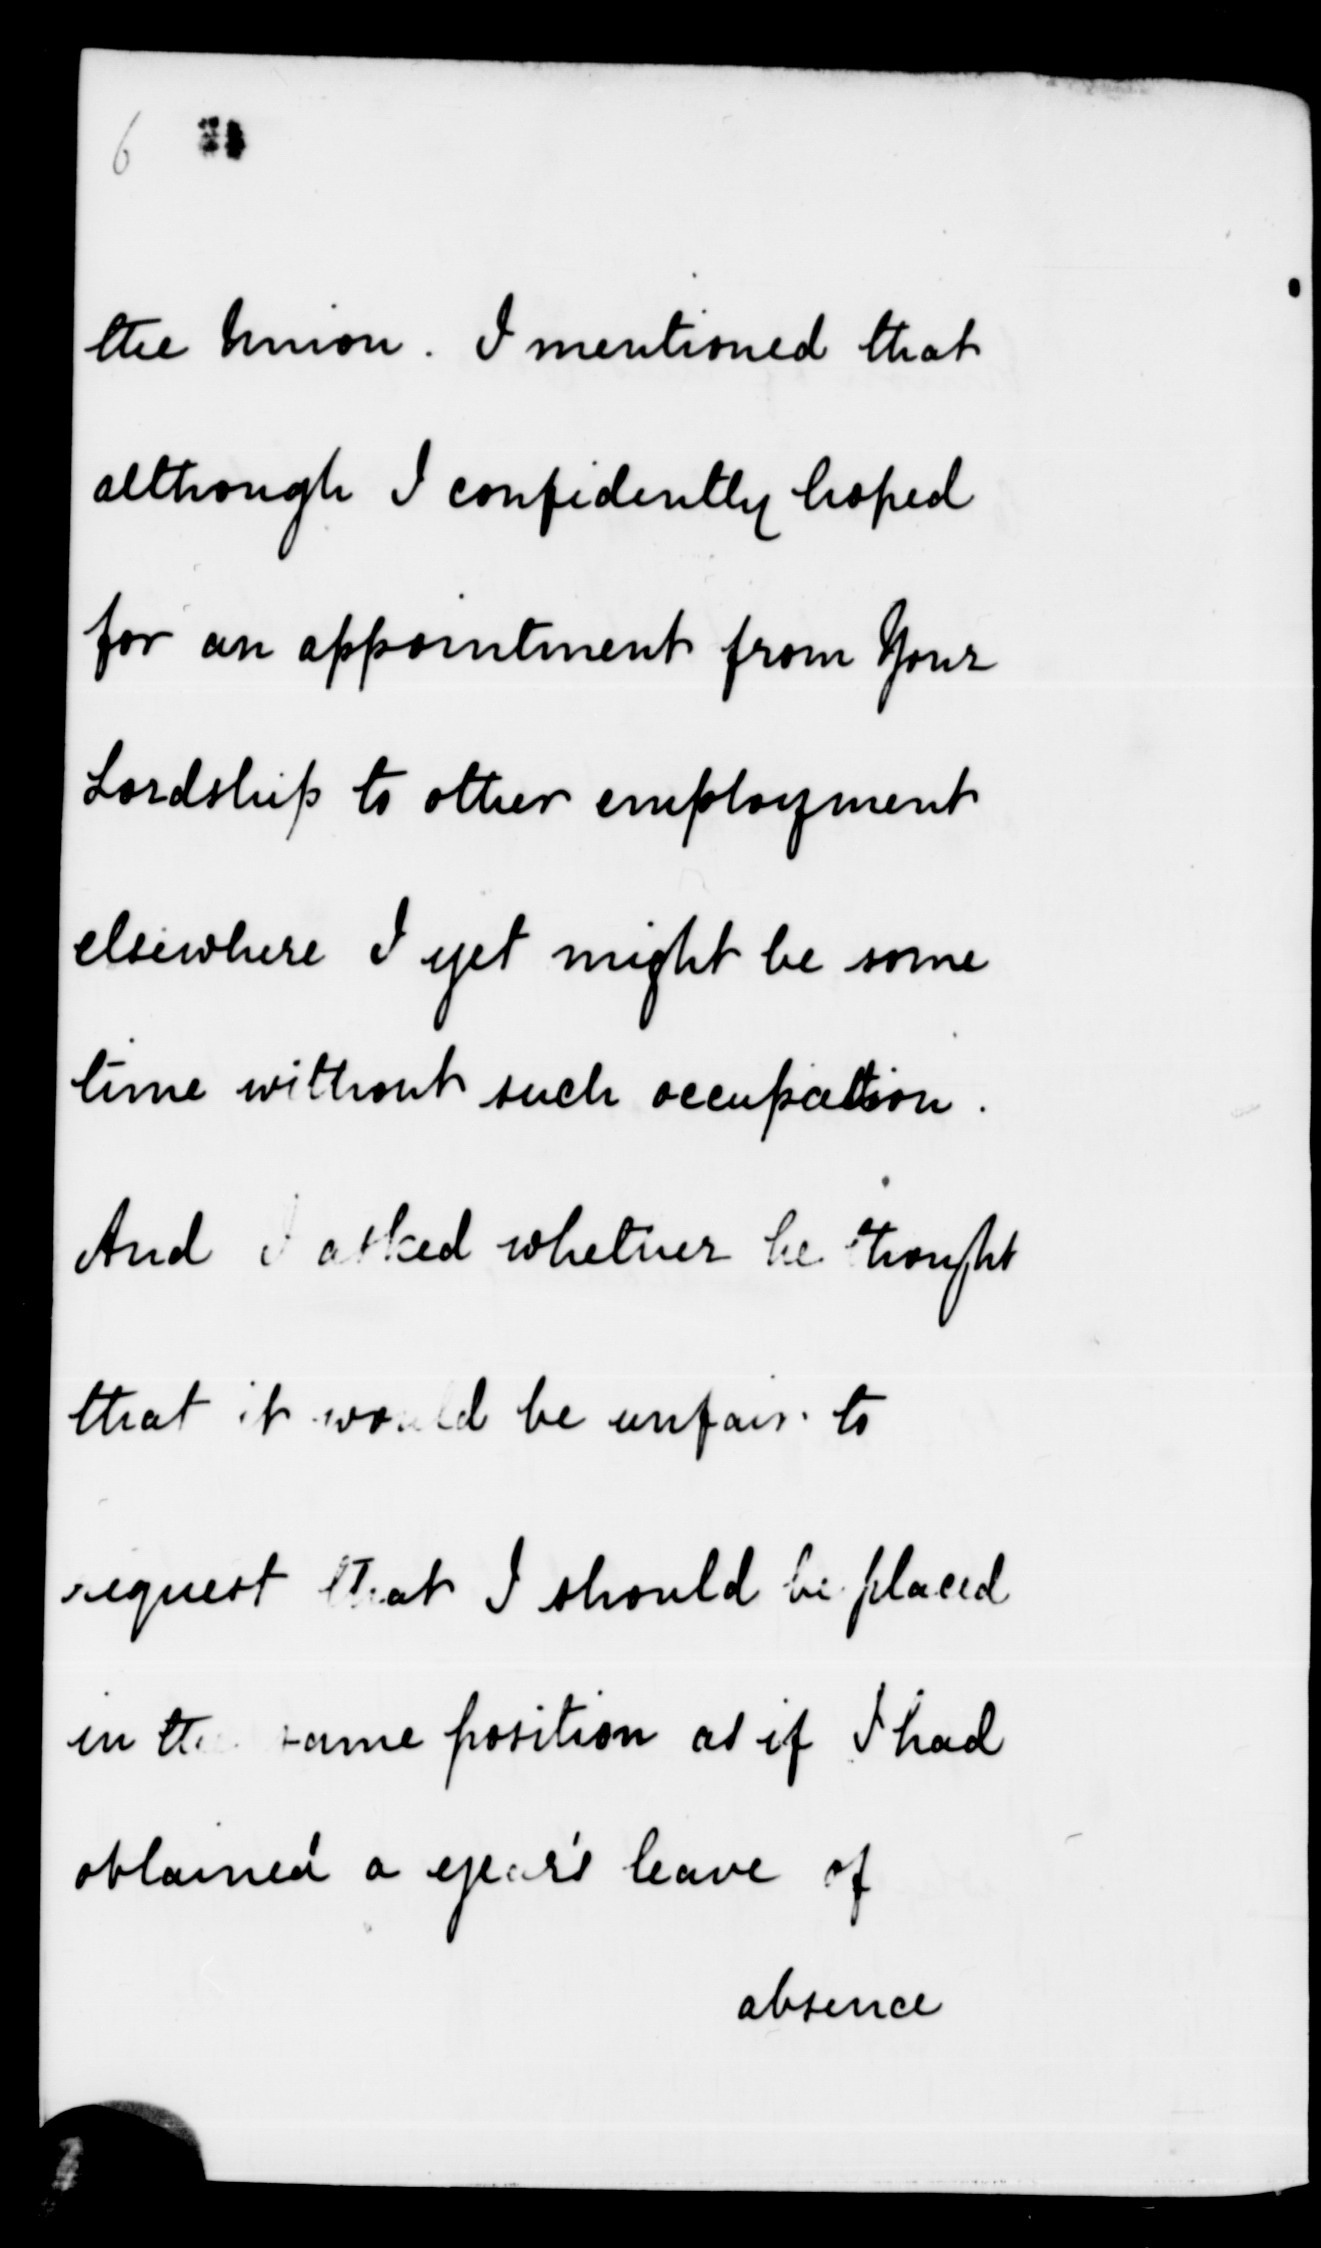 6
the Union. I mentioned that
although I confidently hoped
for an appointment from Your
Lordship to other employment
elsewhere I yet might be some
time without such occupation.
And I asked whether he thought
that it would be unfair to
request that I should be placed
in the same position as if I had
obtained a year's leave of
absence